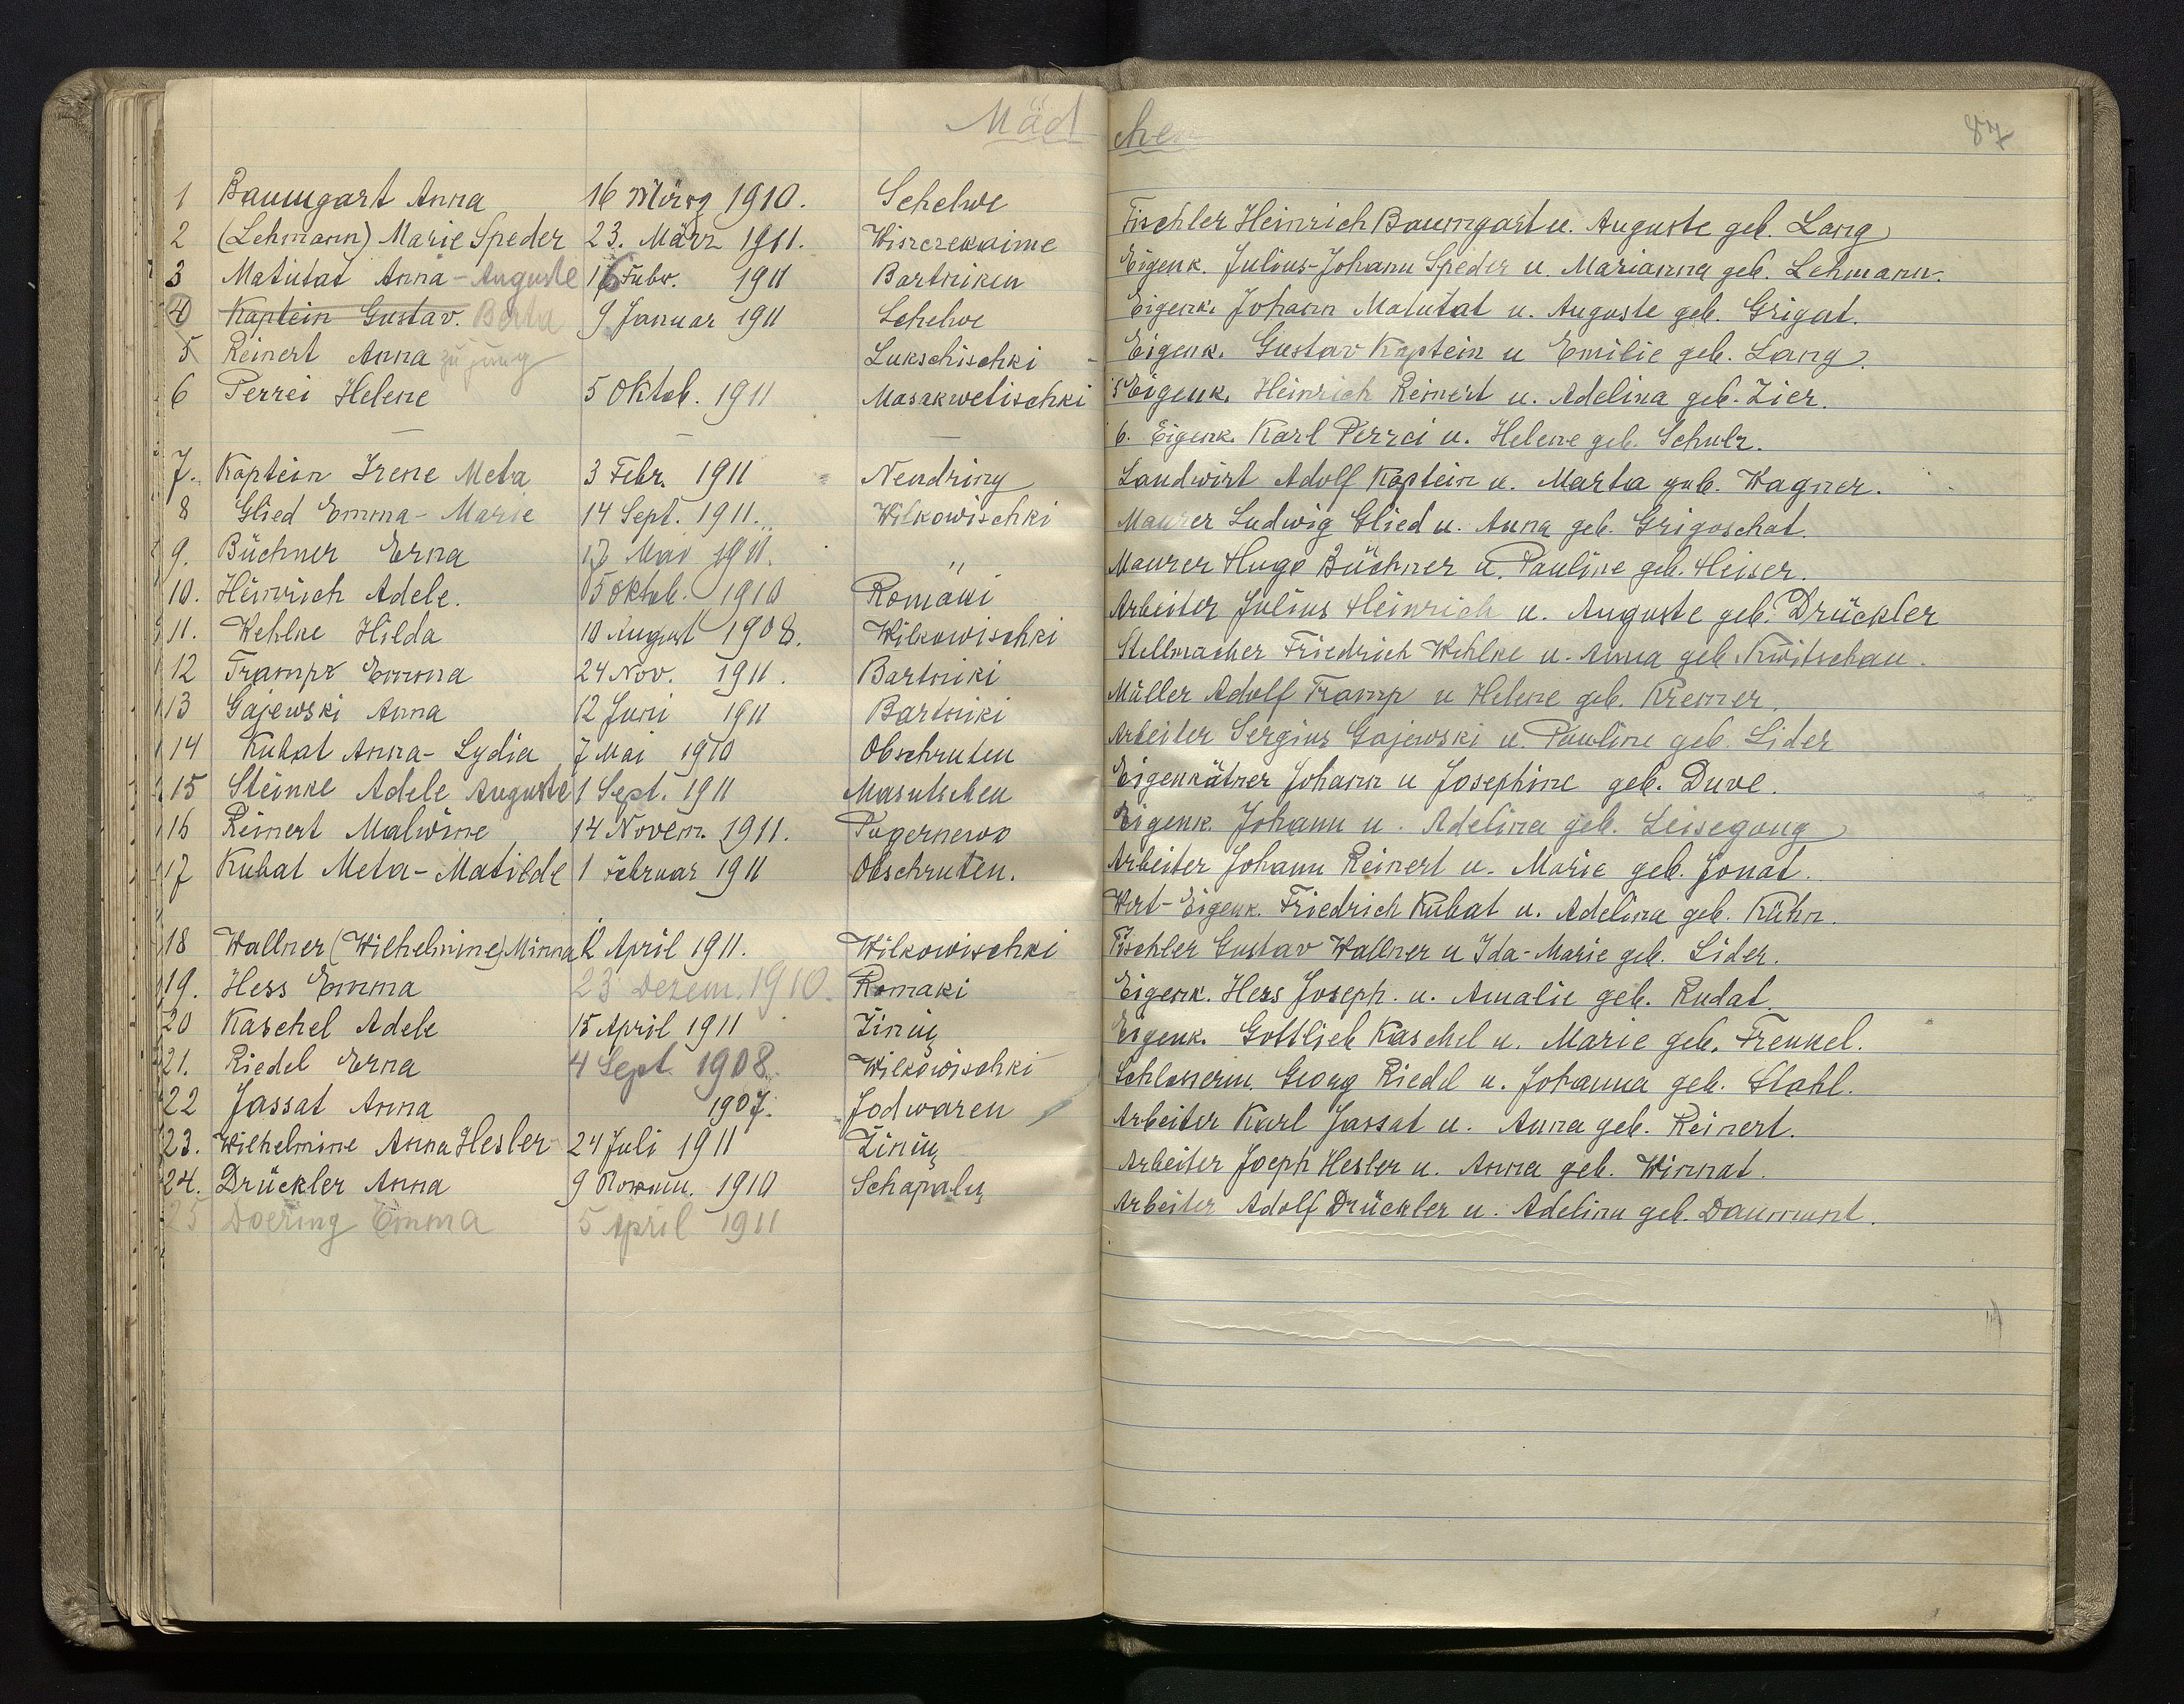 Mädchen
87
1 Baumgart Anna 16 März 1910. Schelwe
2 (Lehmann) Marie Speder 23. März 1911. Wiszczekaime
3 Matutat Anna-Auguste 16 Febr. 1911 Bartniken
4 Kaptein Gustav. Berta 9 Januar 1911 Schelwe
5 Reinert Anna zu jung Lukschischki
6 Perrei Helene 5 Oktob. 1911 Masakwetischki
7. Kaptein Irene Meta 3 Febr. 1911 Nendring
8 Glied Emma-Marie 14 Sept. 1911. Wilkowischki
9. Büchner Erna Mai 1911. "
10. Heinrich Adele. 5 Oktob. 1910 Romaki
11. Wehlke Hilda 10 August 1908. Wilkowischki
12 Tramp Emma 24 Nov. 1911. Bartniki
13 Gajewski Anna 12 Juni 1911 Bartniki
14 Kubat Anna-Lydia 7 Mai 1910 Obschruten
15 Steinke Adele Auguste 1 Sept. 1911 Masutschen
16 Reinert Malwine 14 Novem. 1911. Pogernewo
17 Kubat Meta-Matilde 1 Februar 1911 Obschruten.
18 Wallner (Wilhelmine) Minna 2 April 1911. Wilkowischki
19. Hess Emma 23 Dezem. 1910. Romaki
20 Kaschel Adele 15 April 1911 Žinių
21. Riedel Erna 4 Sept. 1908. Wilkowischki
22 Jassat Anna 1907. Jodwaren
23. Wilhelmine Anna Hesler 24 Juli 1911 Žinių
24. Drückler Anna 9 Novem. 1910 Schapalų
25 Doering Emma 5 April 1911
Tischler Heinrich Baumgart u. Auguste geb. Lang
Eigenk. Julius-Johann Speder u. Marianna geb. Lehmann.
Eigenk. Johann Matutat u. Auguste geb. Grigat.
Eigenk. Gustav Kaptein u Emilie geb. Lang.
5 Eigenk. Heinrich Reinert u. Adelina geb. Zier.
6. Eigenk. Karl Perrei u. Helene geb. Schulz.
Landwirt Adolf Kaptein u. Marta geb. Wagner.
Maurer Ludwig Glied u. Anna geb. Grigoschat.
Maurer Hugo Büchner u. Pauline geb. Heiser.
Arbeiter Julius Heinrich u. Auguste geb. Drückler
Stellmacher Friedrich Wehlke u. Anna geb. Kwitschau.
Müller Adolf Tramp u Helene geb. Kremer.
Arbeiter Sergius Gajewski u. Pauline geb. Lider
Eigenkätner Johann u Josephine geb. Duve.
Eigenk. Johann u. Adelina geb. Leisegang
Arbeiter Johann Reinert u. Marie geb. Jonat.
Wirt-Eigenk. Friedrich Kubat u. Adelina geb. Kühn.
Tischler Gustav Wallner u Ida-Marie geb. Lider.
Eigenk. Hess Joseph. u. Amalie geb. Rudat
Eigenk. Gottlieb Kaschel u. Marie geb. Frenkel.
Schlosserm. Georg Riedel u. Johanna geb. Stahl.
Arbeiter Karl Jassat u. Anna geb. Reinert.
Arbeiter Joeph Hesler u. Anna geb. Winnat.
Arbeiter Adolf Drückler u. Adelina geb. Daumunt.